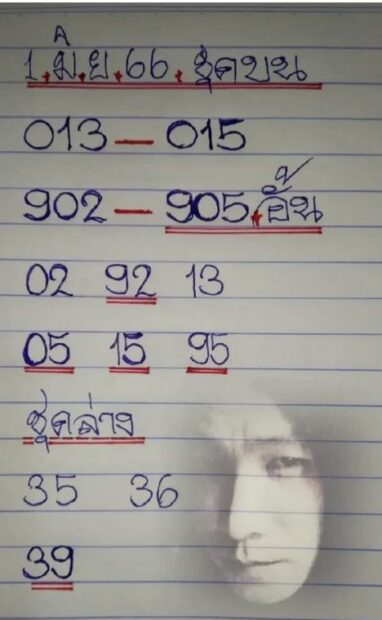 1.มิ.ย.66.ชุดบน
013 — 015
902 — 905.อั้น
02 92 13
05 15 95
ชุดล่าง
35 36
39